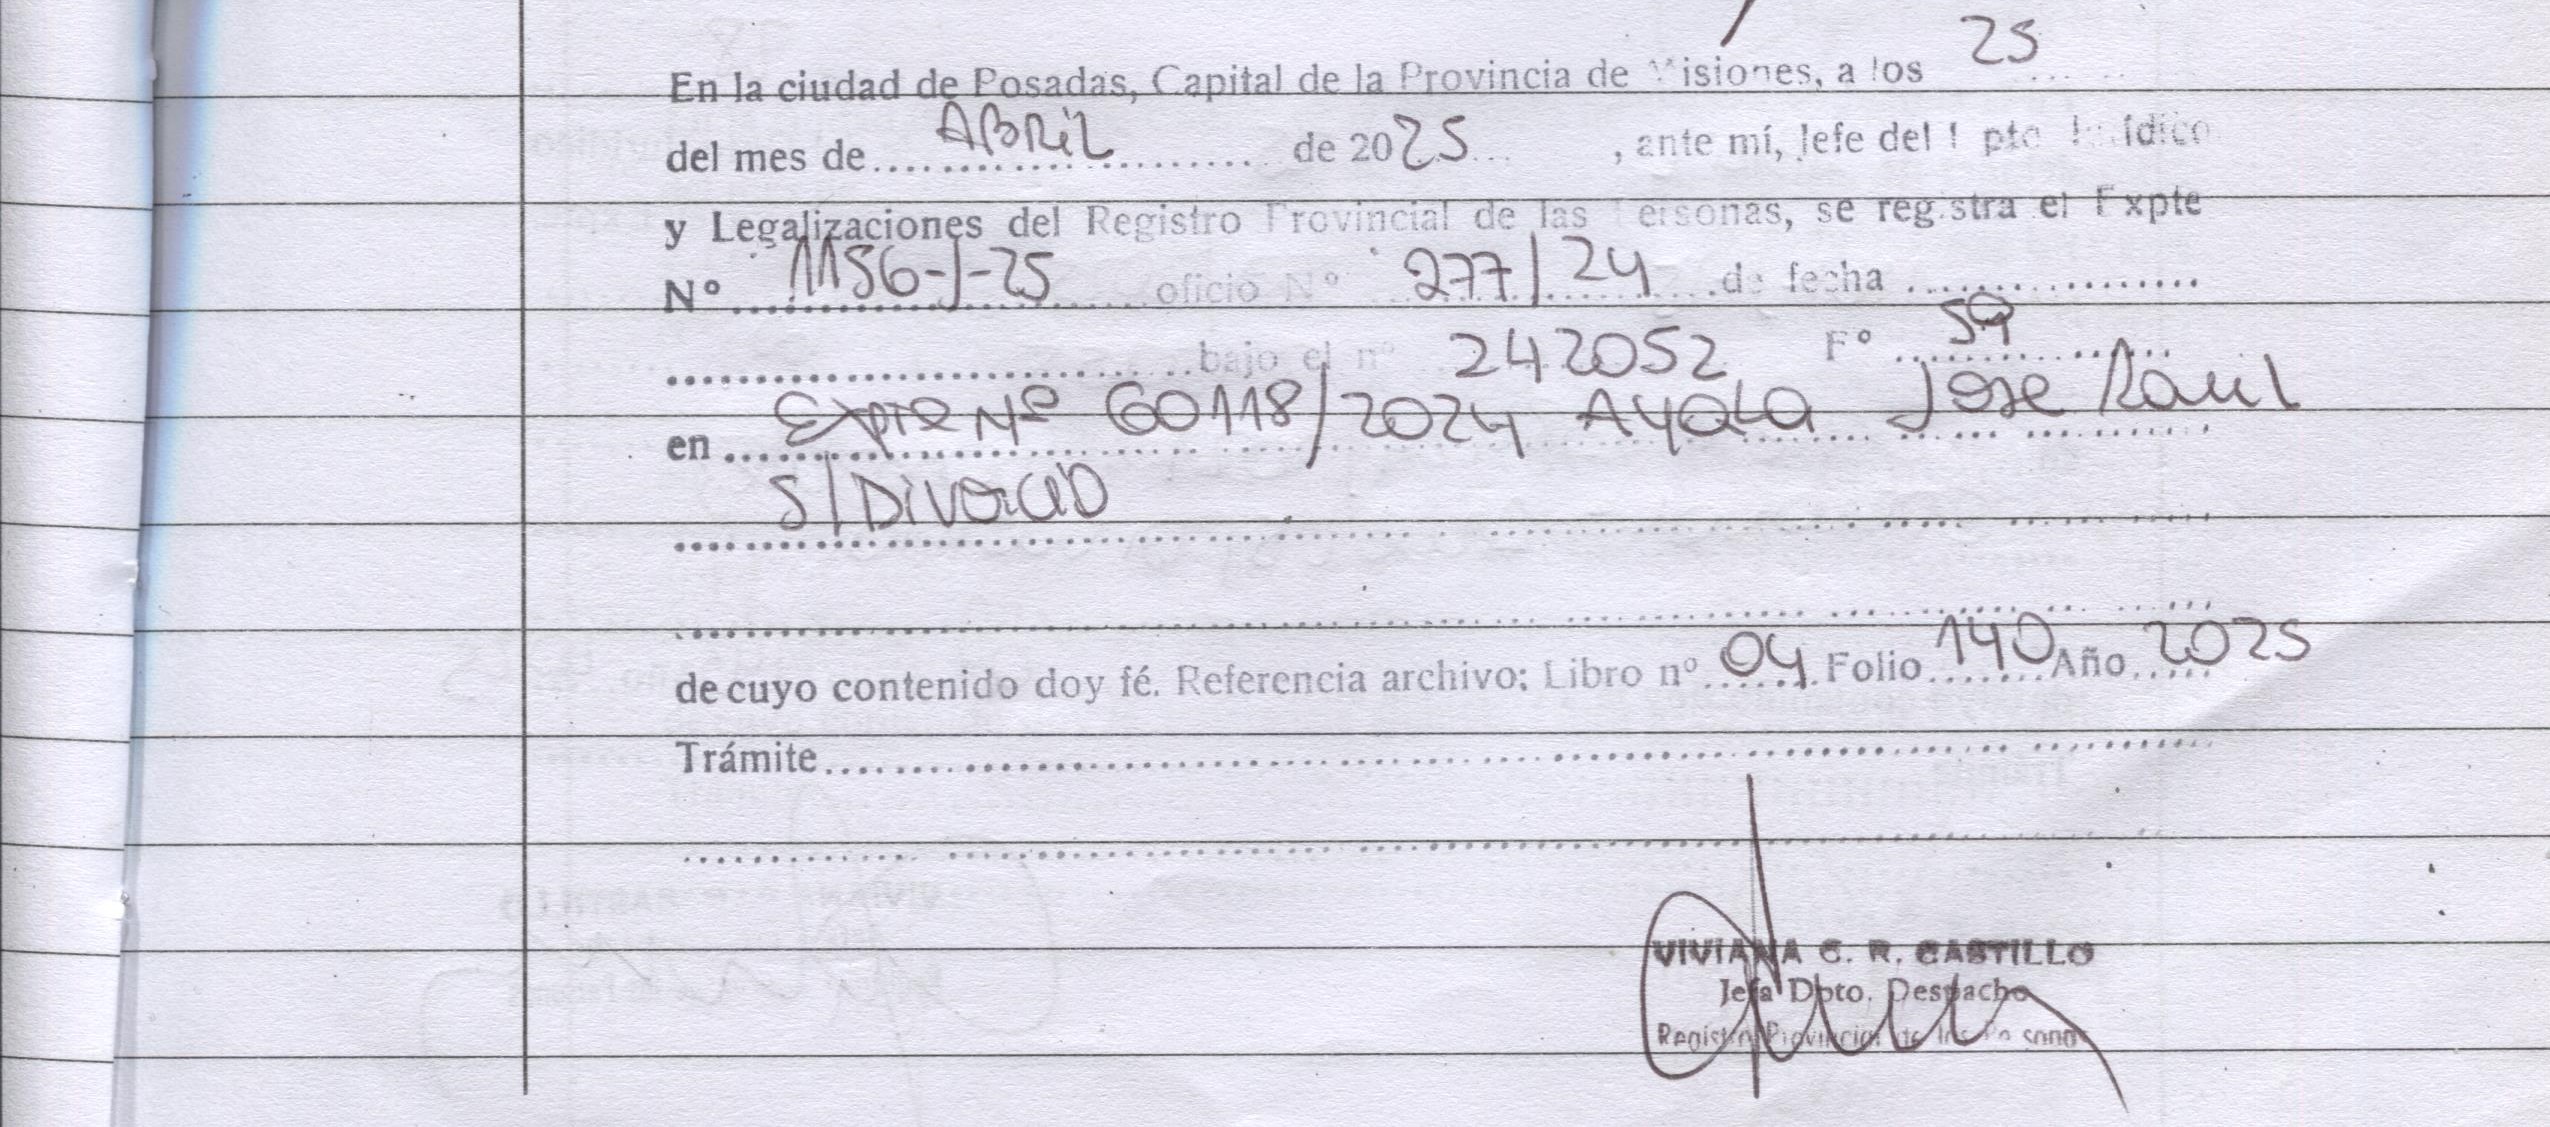 En la ciudad de Posadas, Capital de la Provincia de Misiones, a los 25
del mes de ABRIL de 2025, ante mí, Jefe del Dpto Jurídico
y Legalizaciones del Registro Provincial de las Personas, se registra el Expte
Nº 1156-J-25 oficio Nº 277/24 de fecha
bajo el nº 242052 Fº 59
en Expte Nº 60118/2024 AYALA Jose Raul
S/DIVORCIO
de cuyo contenido doy fé. Referencia archivo: Libro nº 04 Folio 140 Año 2025
Trámite
VIVIANA C. R. CASTILLO
Jefa Dpto. Despacho
Registro Provincial de las Personas